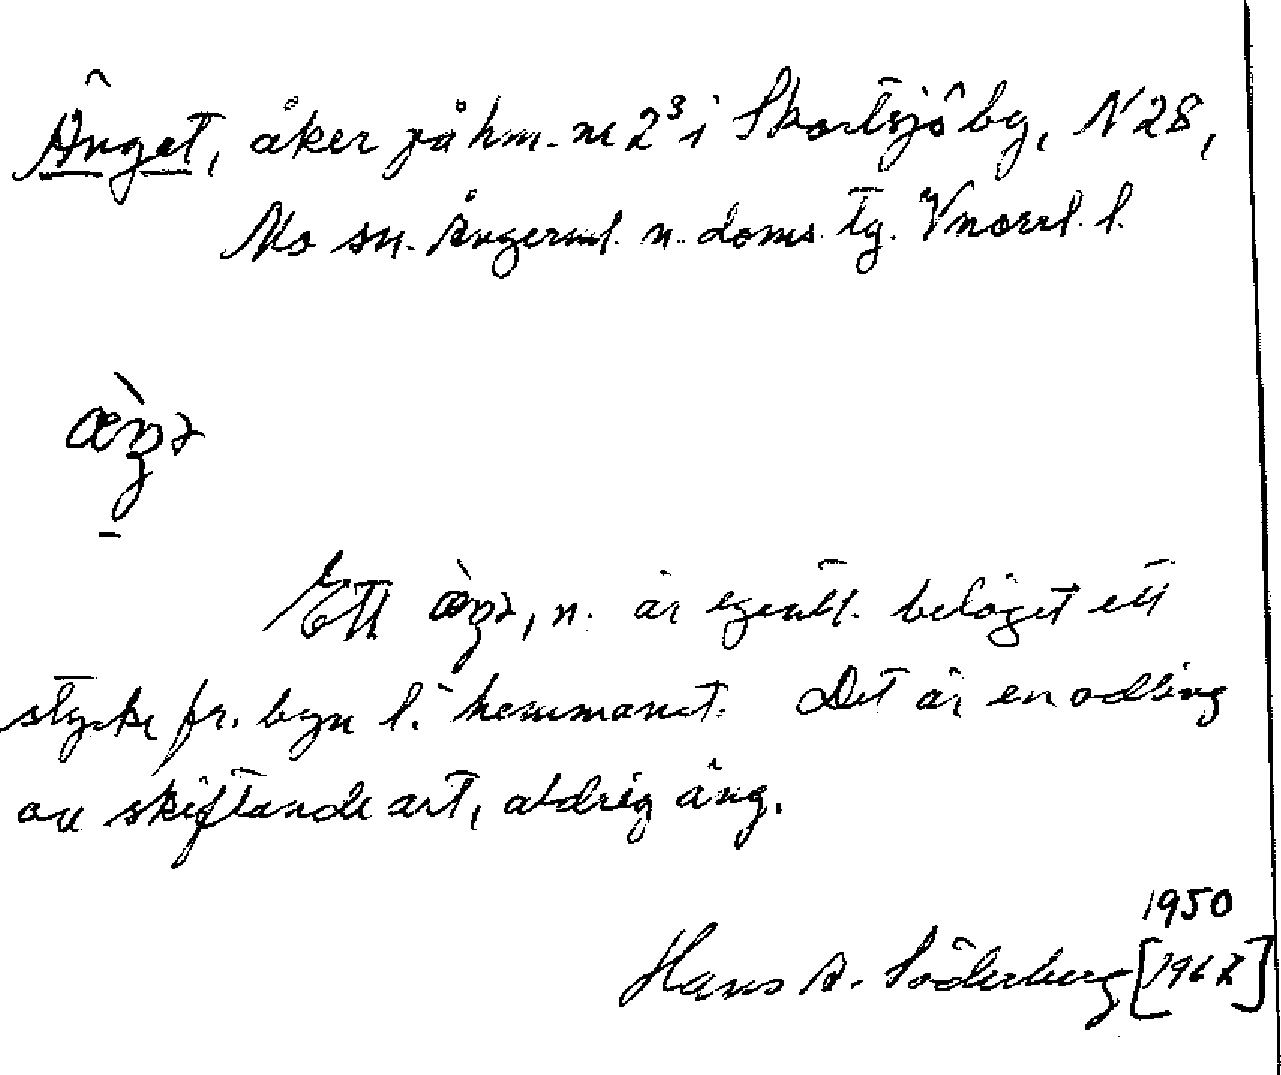 Änget, åker på hm. nr 2³ i Skortsjö by, N 28,
Mo sn. Ångerml. n. doms. tg. Vnorrl. l.
æ̀ŋə
Ett æ̀ŋə, n. är egentl. beläget ett
stycke fr. byn l. hemmanet. Det är en odling
av skiftande art, aldrig äng.
1950
Hans A. Söderberg [1967]